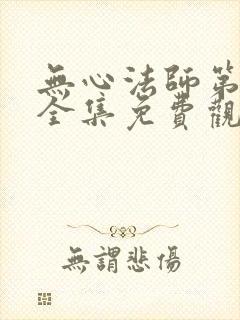 無心法師第
全集免費觀
無謂悲傷